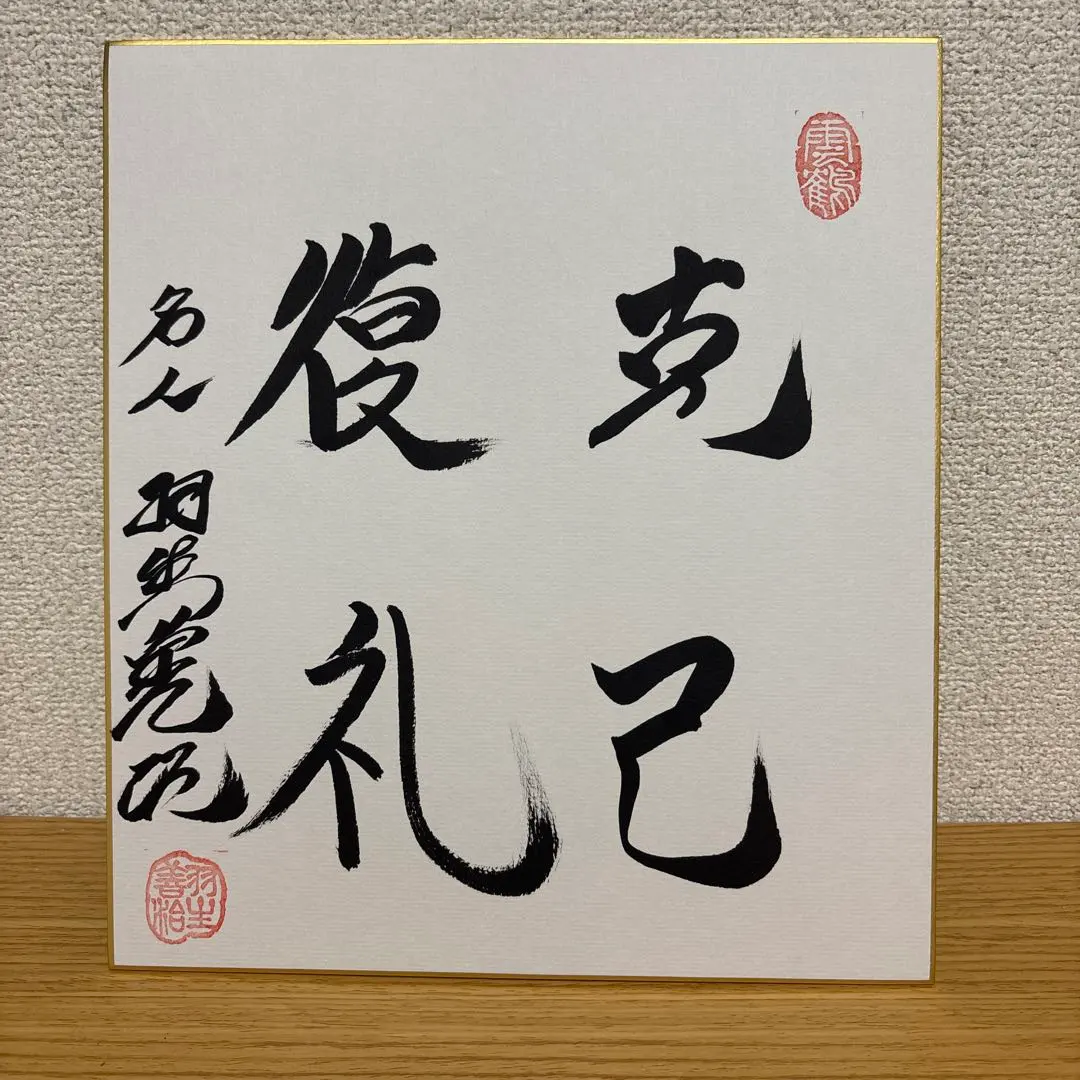 雲鶴
克己
復礼
名人 羽生善治
羽生
善治